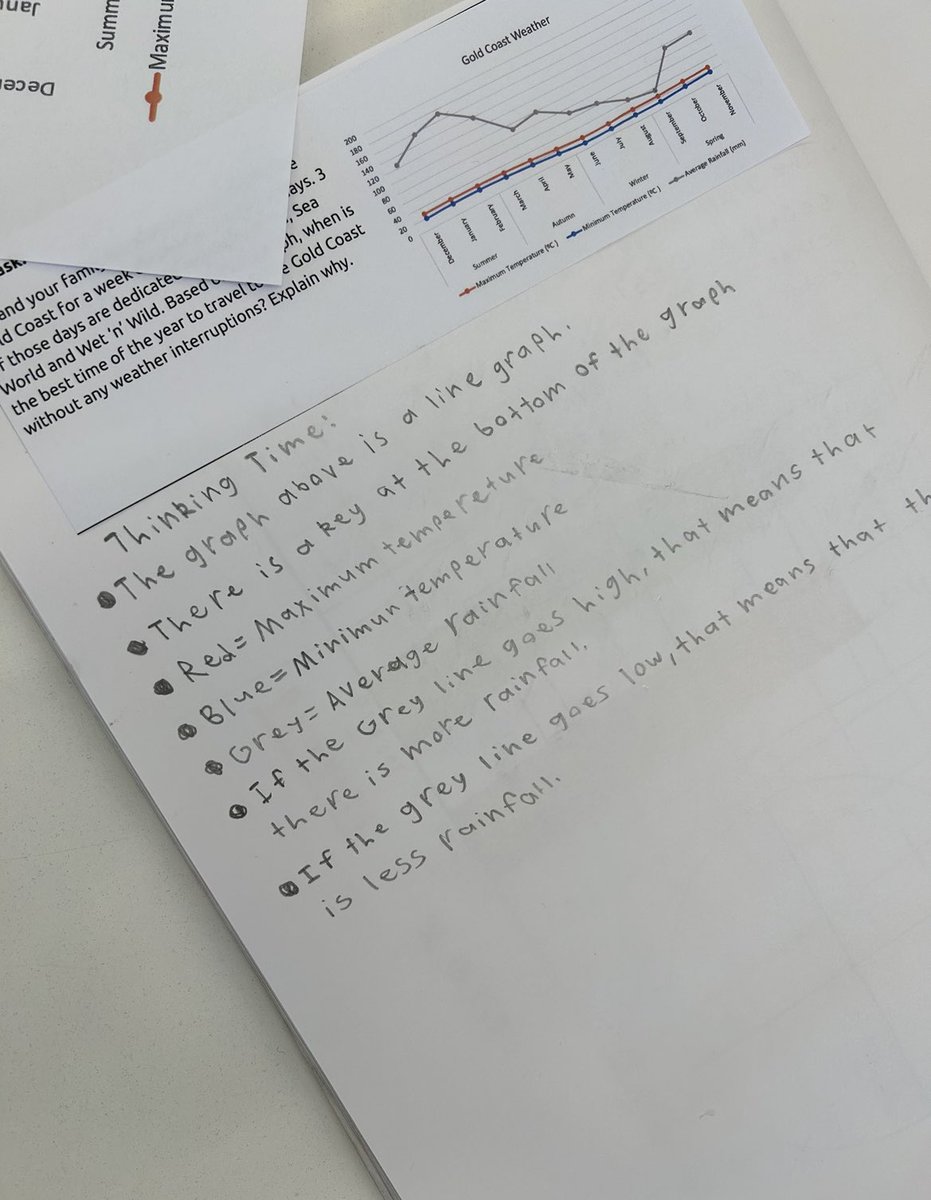 Janu
Summ
Maximu
Decem
Gold Coast Weather
200
180
160
140
120
100
80
60
40
20
0
December
January
February
March
April
May
June
July
August
September
October
November
Summer
Autumn
Winter
Spring
Maximum Temperature (ºC)
Minimum Temperature (ºC)
Average Rainfall (mm)
ays. 3
, Sea
ph, when is
and your family
ld Coast for a week
f those days are dedicated
World and Wet 'n' Wild. Based
the best time of the year to travel to Gold Coast
without any weather interruptions? Explain why.
Thinking Time:
• The graph above is a line graph.
• There is a key at the bottom of the graph
• Red= Maximum tempereture
• Blue= Minimun temperature
• Grey= Average rainfall
• If the Grey line goes high, that means that
there is more rainfall.
• If the grey line goes low, that means that th
is less rainfall.